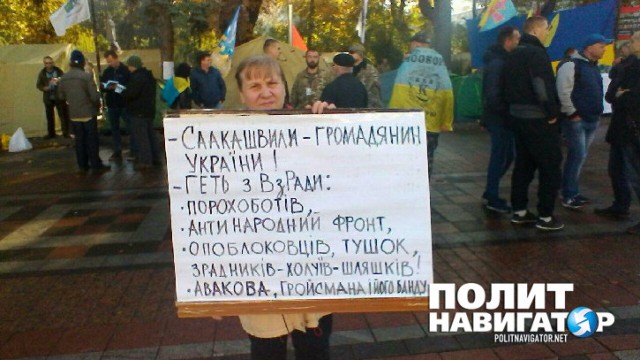 - СААКАШВИЛИ - ГРОМАДЯНИН
УКРАЇНИ!
- ГЕТЬ З ВЗРАДИ:
• ПОРОХОБОТІВ,
• АНТИ НАРОДНИЙ ФРОНТ,
• ОПОБЛОКОВЦІВ, ТУШОК,
ЗРАДНИКІВ-ХОЛУЇВ-ШЛЯШКІВ!
• АВАКОВА, ГРОЙСМАНА І ЙОГО БАНДУ
ПОЛИТ
НАВИГАТОР
POLITNAVIGATOR.NET